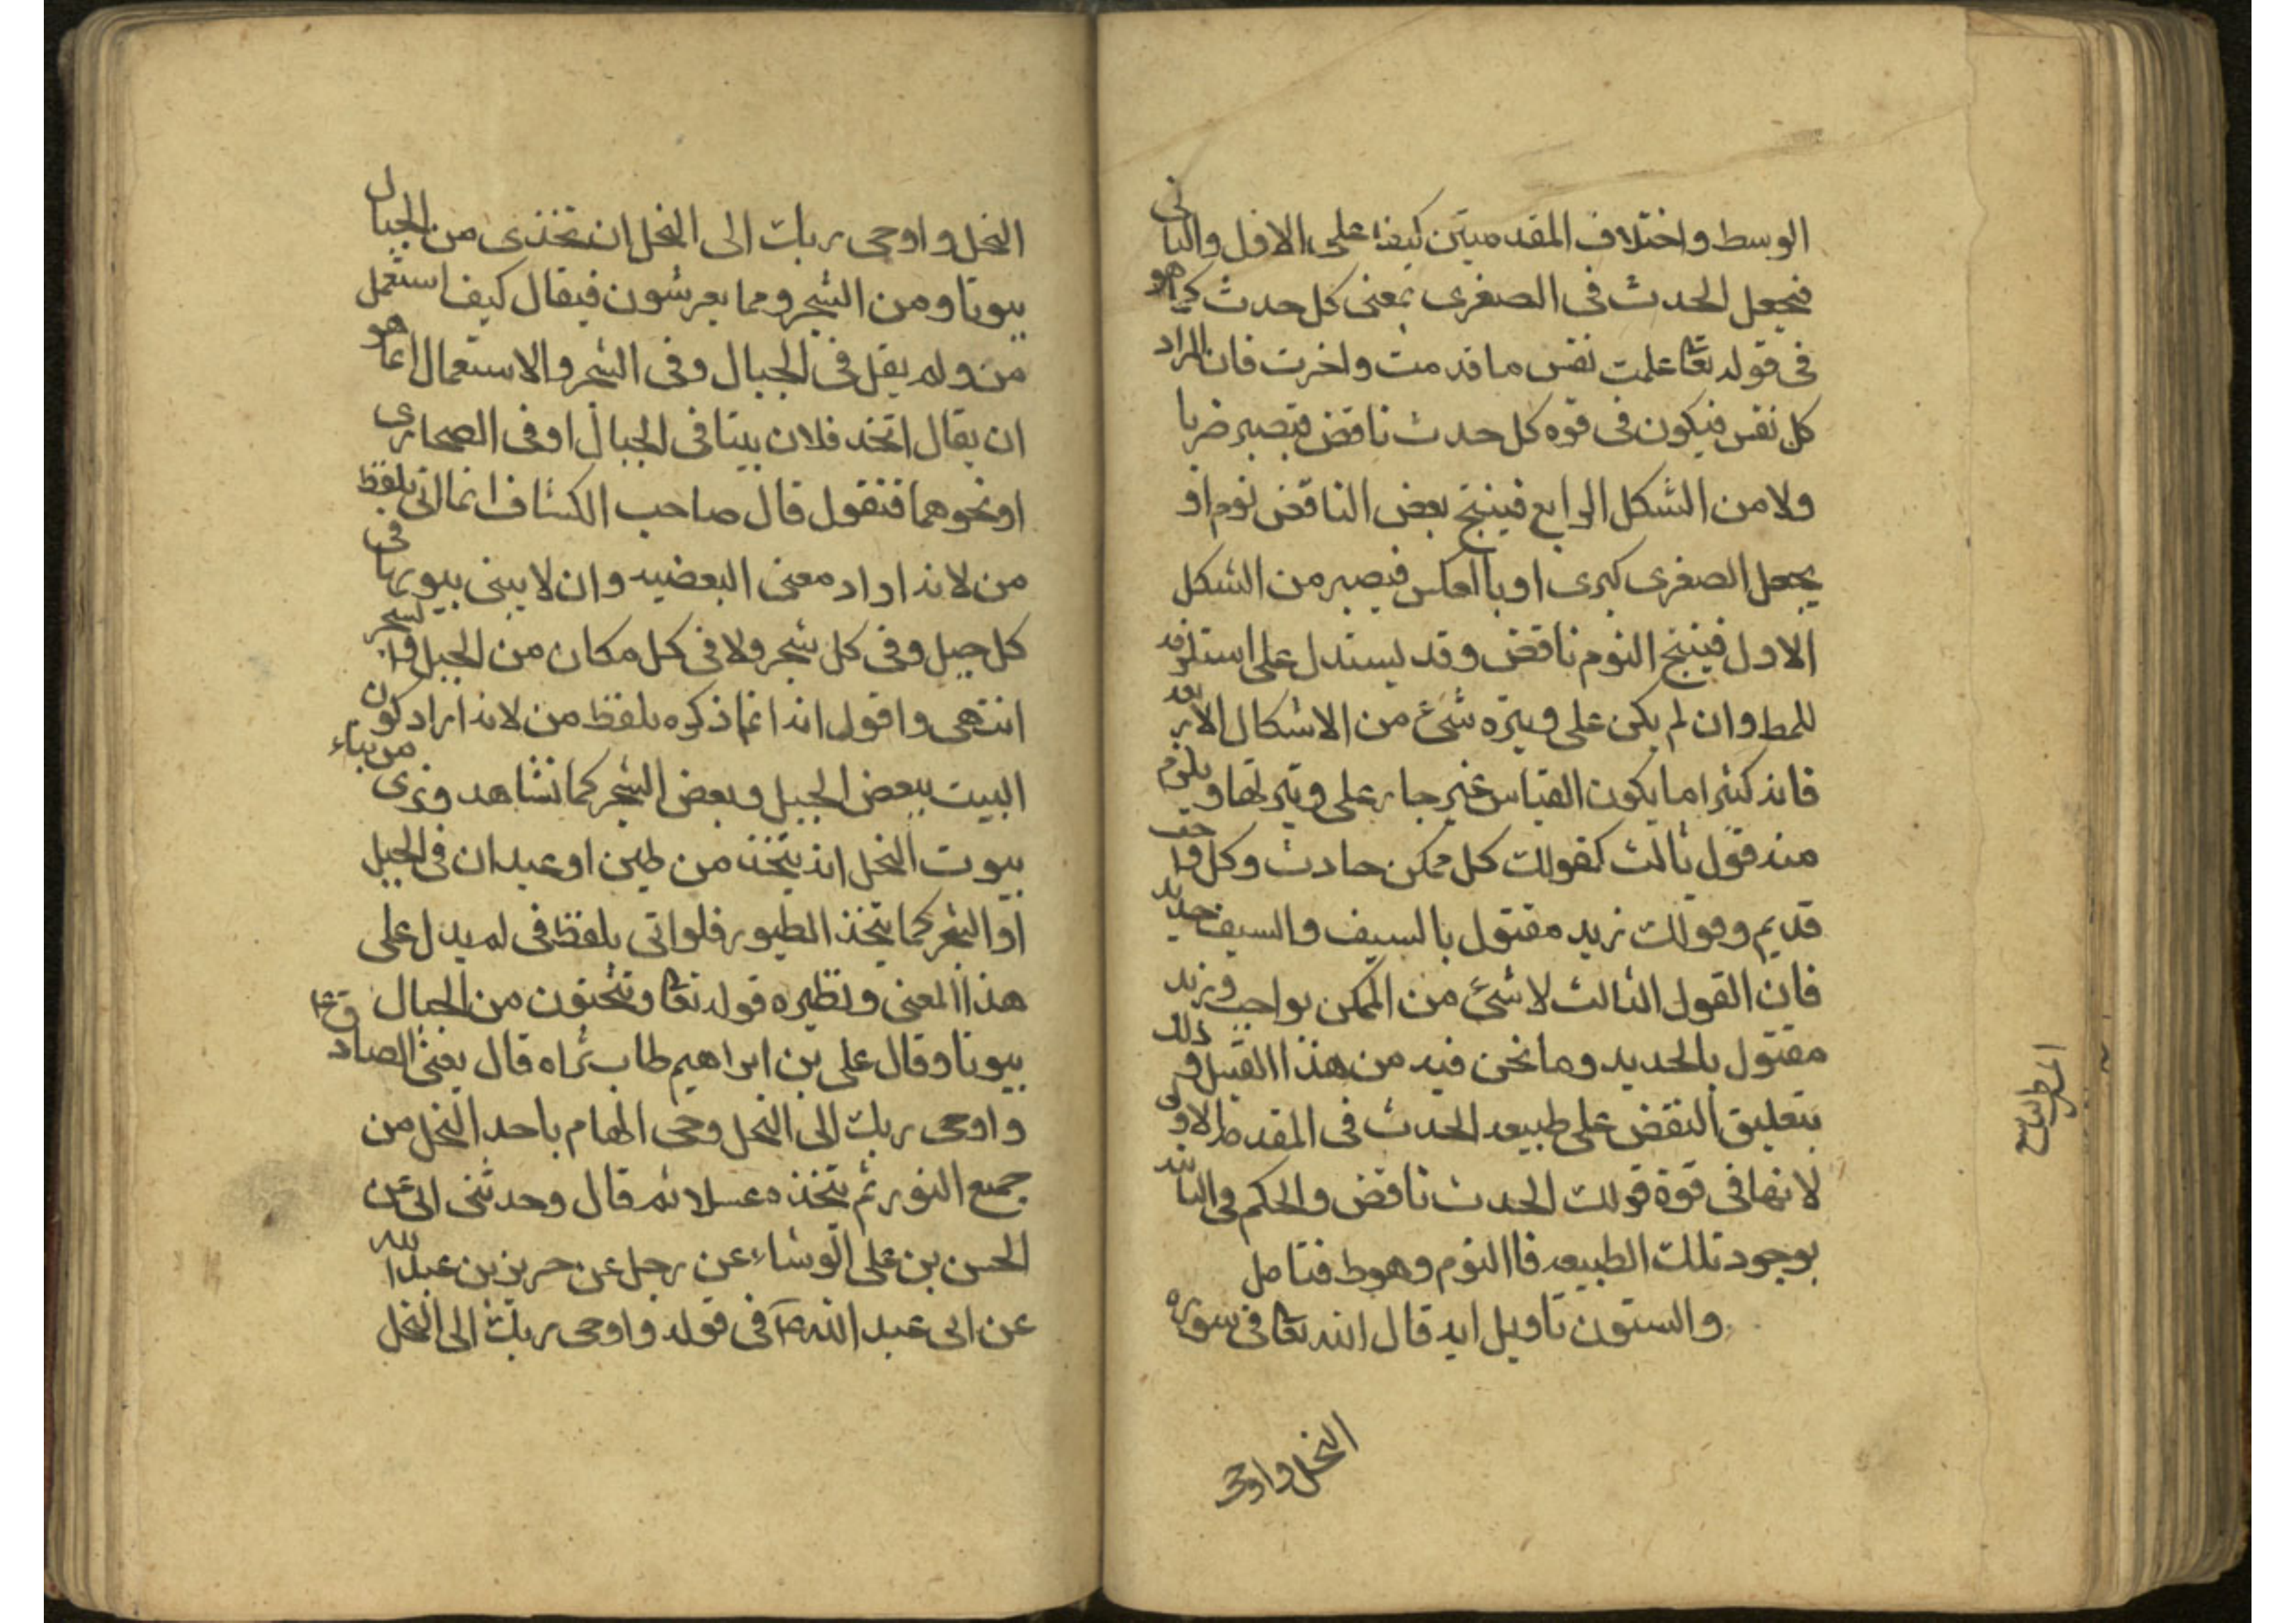 الوسط واختلاف المقدمتين كيفا على الاول والثانى
فنجعل الحدث فى الصغرى بمعنى كل حدث كما هو
فى قوله تعا علمت نفس ما قدمت واخرت فان المراد
كل نفس فيكون فى قوه كل حدث ناقض فيصير ضربا
ولا من الشكل الرابع فينتج بعض الناقض نوم او
يجعل الصغرى كبرى او باالعكس فيصير من الشكل
الاول فينتج النوم ناقض وقد يستدل على استلزامه
للمط وان لم يكن على وتيره شئ من الاشكال الاربعه
فانه كثيرا ما يكون القياس غير جار على وتيرتها ويلزم
منه قول ثالث كقولك كل ممكن حادث وكل واجب
قديم وقولك زيد مقتول بالسيف والسيف حديد
فان القول الثالث لا شئ من الممكن بواجب وزيد
مقتول بالحديد وما نحن فيه من هذا القبيل وذلك
بتعليق النقض على طبيعه الحدث فى المقدمه الاولى
لانها فى قوة قولك الحدث ناقض والحكم فى الثانيه
بوجود تلك الطبيعه فاالنوم وهوط فتامل
والستون تاويل ايه قال الله تعا فى سوره
النحل واوحى
النحل واوحى ربك الى النحل ان تخذى من الجبال
بيوتا ومن الشجر ومما يعرشون فيقال كيف استعمل
من ولم يقل فى الجبال وفى الشجر والاستعمال انما هو
ان يقال اتخذ فلان بيتا فى الجبال او فى الصحارى
او نحوهما فنقول قال صاحب الكشاف انما اتى بلفظ
من لانه اراد معنى البعضيه وان لا يبنى بيوتها فى
كل جبل وفى كل شجر ولا فى كل مكان من الجبل والشجر
انتهى واقول انه انما ذكره بلفظ من لانه اراد كون
البيت ببعض الجبل وبعض الشجر كما نشاهد ونرى من بناء
بيوت النحل انه يتخذ من طين او عيدان فى الجبل
او الشجر كما يتخذ الطيور فلو اتى بلفظ فى لم يدل على
هذا المعنى ونظيره قوله تعا وتنحتون من الجبال
بيوتا وقال على بن ابراهيم طاب ثراه قال يعنى الصادق ع
واوحى ربك الى النحل وحى الهام باحد النحل من
جميع النور ثم يتخذه عسلا ثم قال وحدثنى ابى عن
الحسن بن على الوشاء عن رجل عن حريز بن عبد الله
عن ابى عبد الله فى قوله واوحى ربك الى النحل